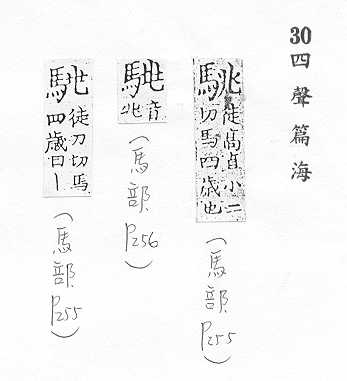 30四聲篇海
駣徒高直小二切馬四歲也
(馬部P255)
音兆
(馬部P256)
徒刀切馬四歲曰丨
(馬部P255)